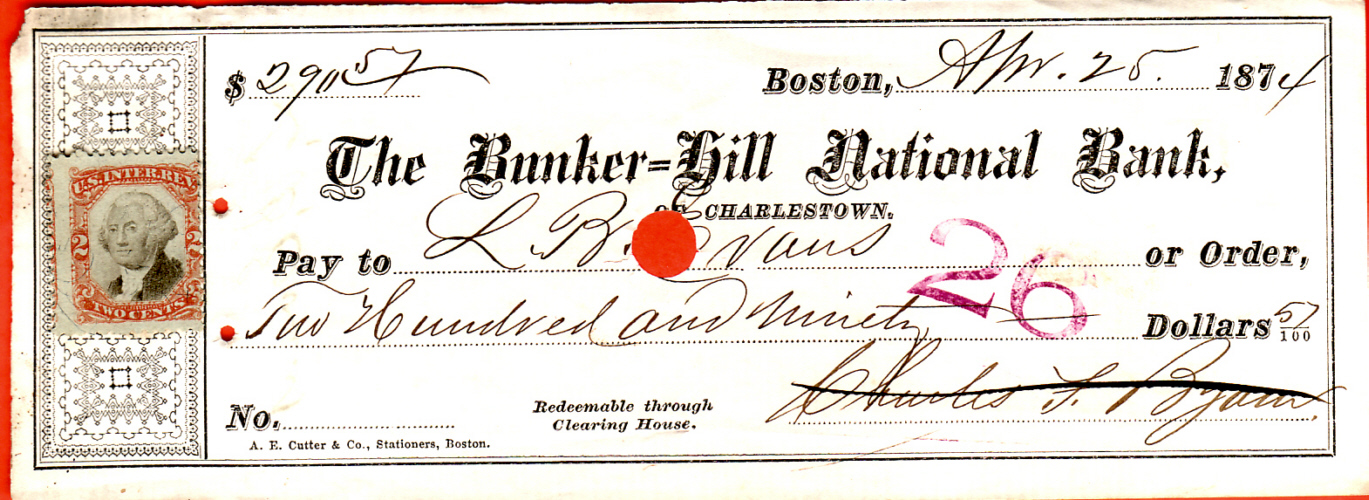 $ 290 57 Boston, Apr. 25. 1874
The Bunker-Hill National Bank,
OF CHARLESTOWN.
U.S. INTER. REV.
2 2
TWO CENTS
Pay to L. B. Evans or Order,
26
Two Hundred and Ninety Dollars 57/100
Charles F. Byam
No.
Redeemable through
Clearing House.
A. E. Cutter & Co., Stationers, Boston.